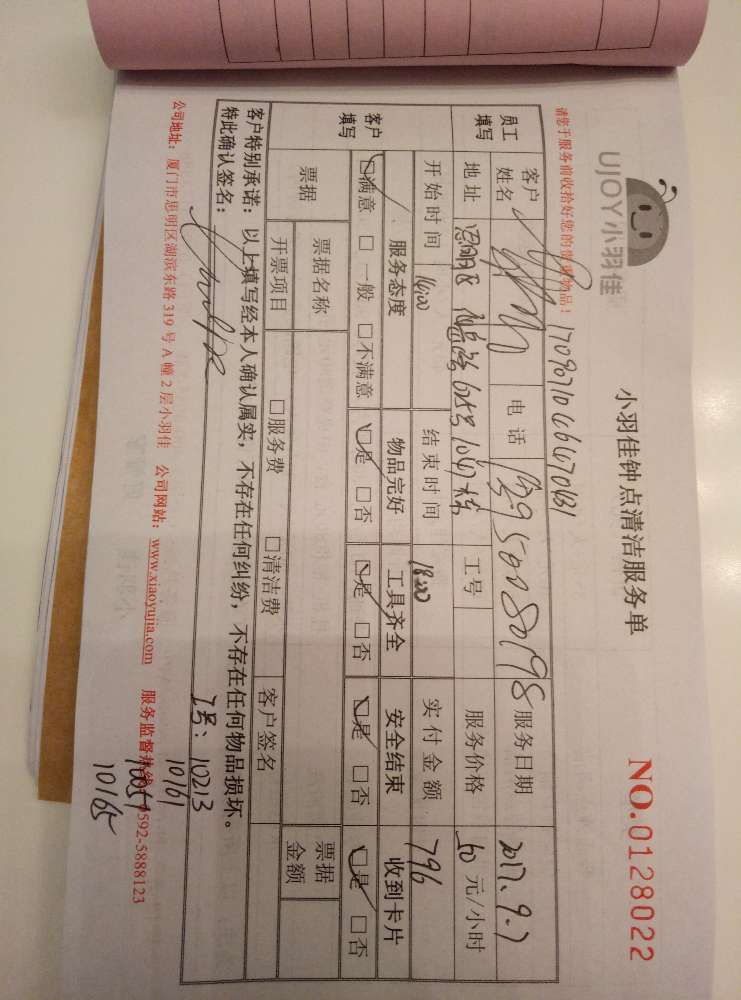 UJOY小羽佳
小羽佳钟点清洁服务单
NO.0128022
请您于服务前收拾好您的贵重物品！
员工填写
客户姓名
电话
服务日期 2017.9.7
地址 思明区
工号
服务价格 50 元/小时
开始时间 14:00 结束时间 18:00 实付金额 796
客户填写
服务态度 物品完好 工具齐全 安全结束 收到卡片
☑满意 □一般 □不满意 ☑是 □否 ☑是 □否 ☑是 □否 ☑是 □否
票据
票据名称
票据金额
开票项目 □服务费 □清洁费 客户签名
客户特别承诺：以上填写经本人确认属实，不存在任何纠纷，不存在任何物品损坏。
特此确认签名：
工号：10213
10161
10057
10165
公司地址：厦门市思明区湖滨东路319号A幢2层小羽佳 公司网站：www.xiaoyujia.com 服务监督热线：0592-5888123